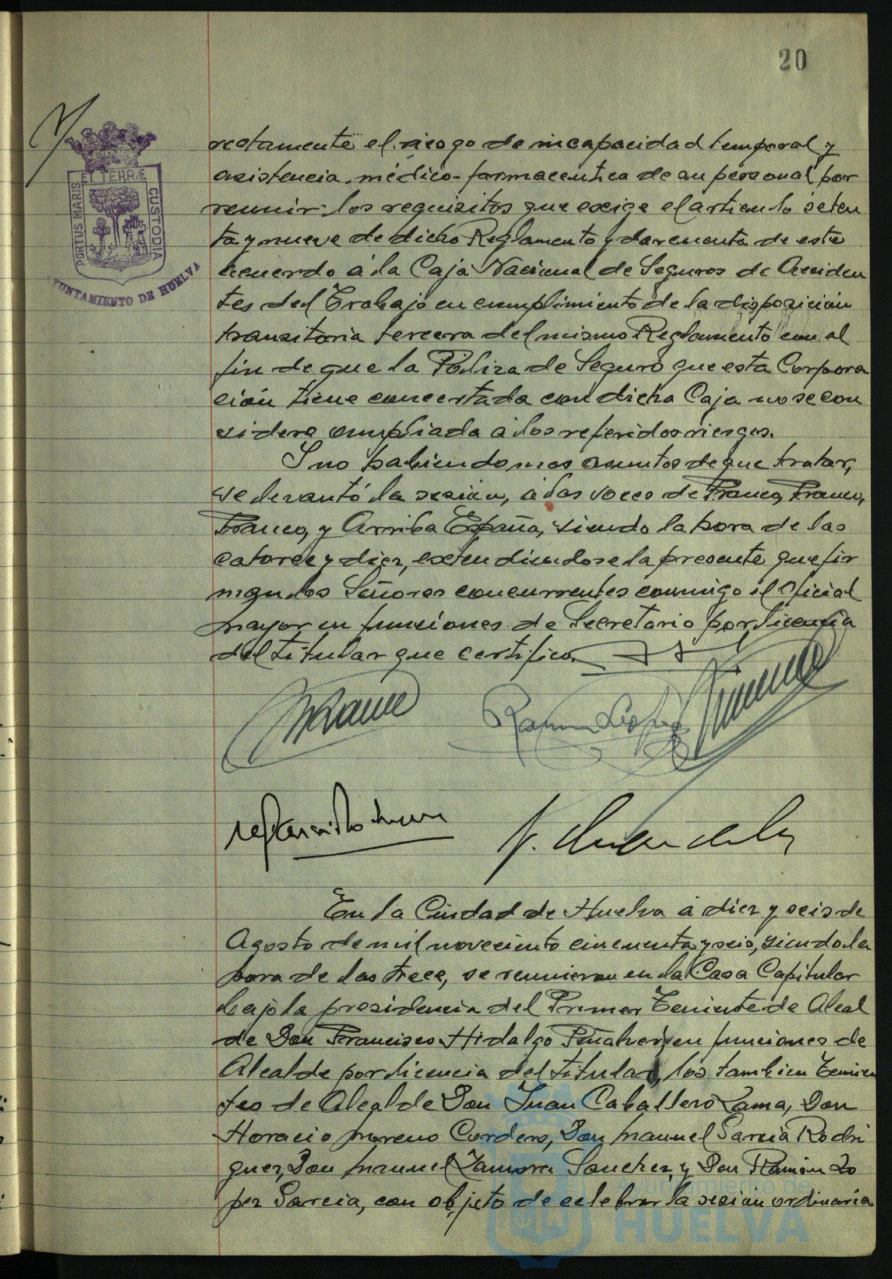 20
PORTUS MARIS ET TERRÆ CUSTODIA
AYUNTAMIENTO DE HUELVA
rectamente el riesgo de incapacidad temporal y
asistencia médico-farmaceutica de su personal por
reunir los requisitos que exige el articulo seten
ta y nueve de dicho Reglamento y dar cuenta de este
acuerdo á la Caja Nacional de Seguros de Acciden
tes del Trabajo en cumplimiento de la disposición
transitoria tercera del mismo Reglamento con el
fin de que la Póliza de Seguro que esta Corpora
ción tiene concertada con dicha Caja no se con
sidere ampliada á los referidos riesgos.
Y no habiendo mas asuntos de que tratar,
se levantó la sesión, á las voces de Franco, Franco,
Franco, y Arriba España, siendo la hora de las
catorce y diez, extendiendose la presente que fir
man los Señores concurrentes conmigo el Oficial
Mayor en funciones de Secretario por licencia
del titular que certifico.
Ramon Lopez
En la Ciudad de Huelva á diez y seis de
Agosto de mil noveciento cincuenta y seis, siendo la
hora de las trece, se reunieron en la Casa Capitular
bajo la presidencia del Primer Teniente de Alcal
de Don Francisco Hidalgo Peñalver, en funciones de
Alcalde por licencia del titular, los tambien Tenien
tes de Alcalde Don Juan Caballero Lama, Don
Horacio Moreno Cordero, Don Manuel Garcia Rodri
guez, Don Manuel Zamora Sanchez y Don Ramón Lo
pez Garcia, con objeto de celebrar la sesión ordinaria
Ayuntamiento de
HUELVA